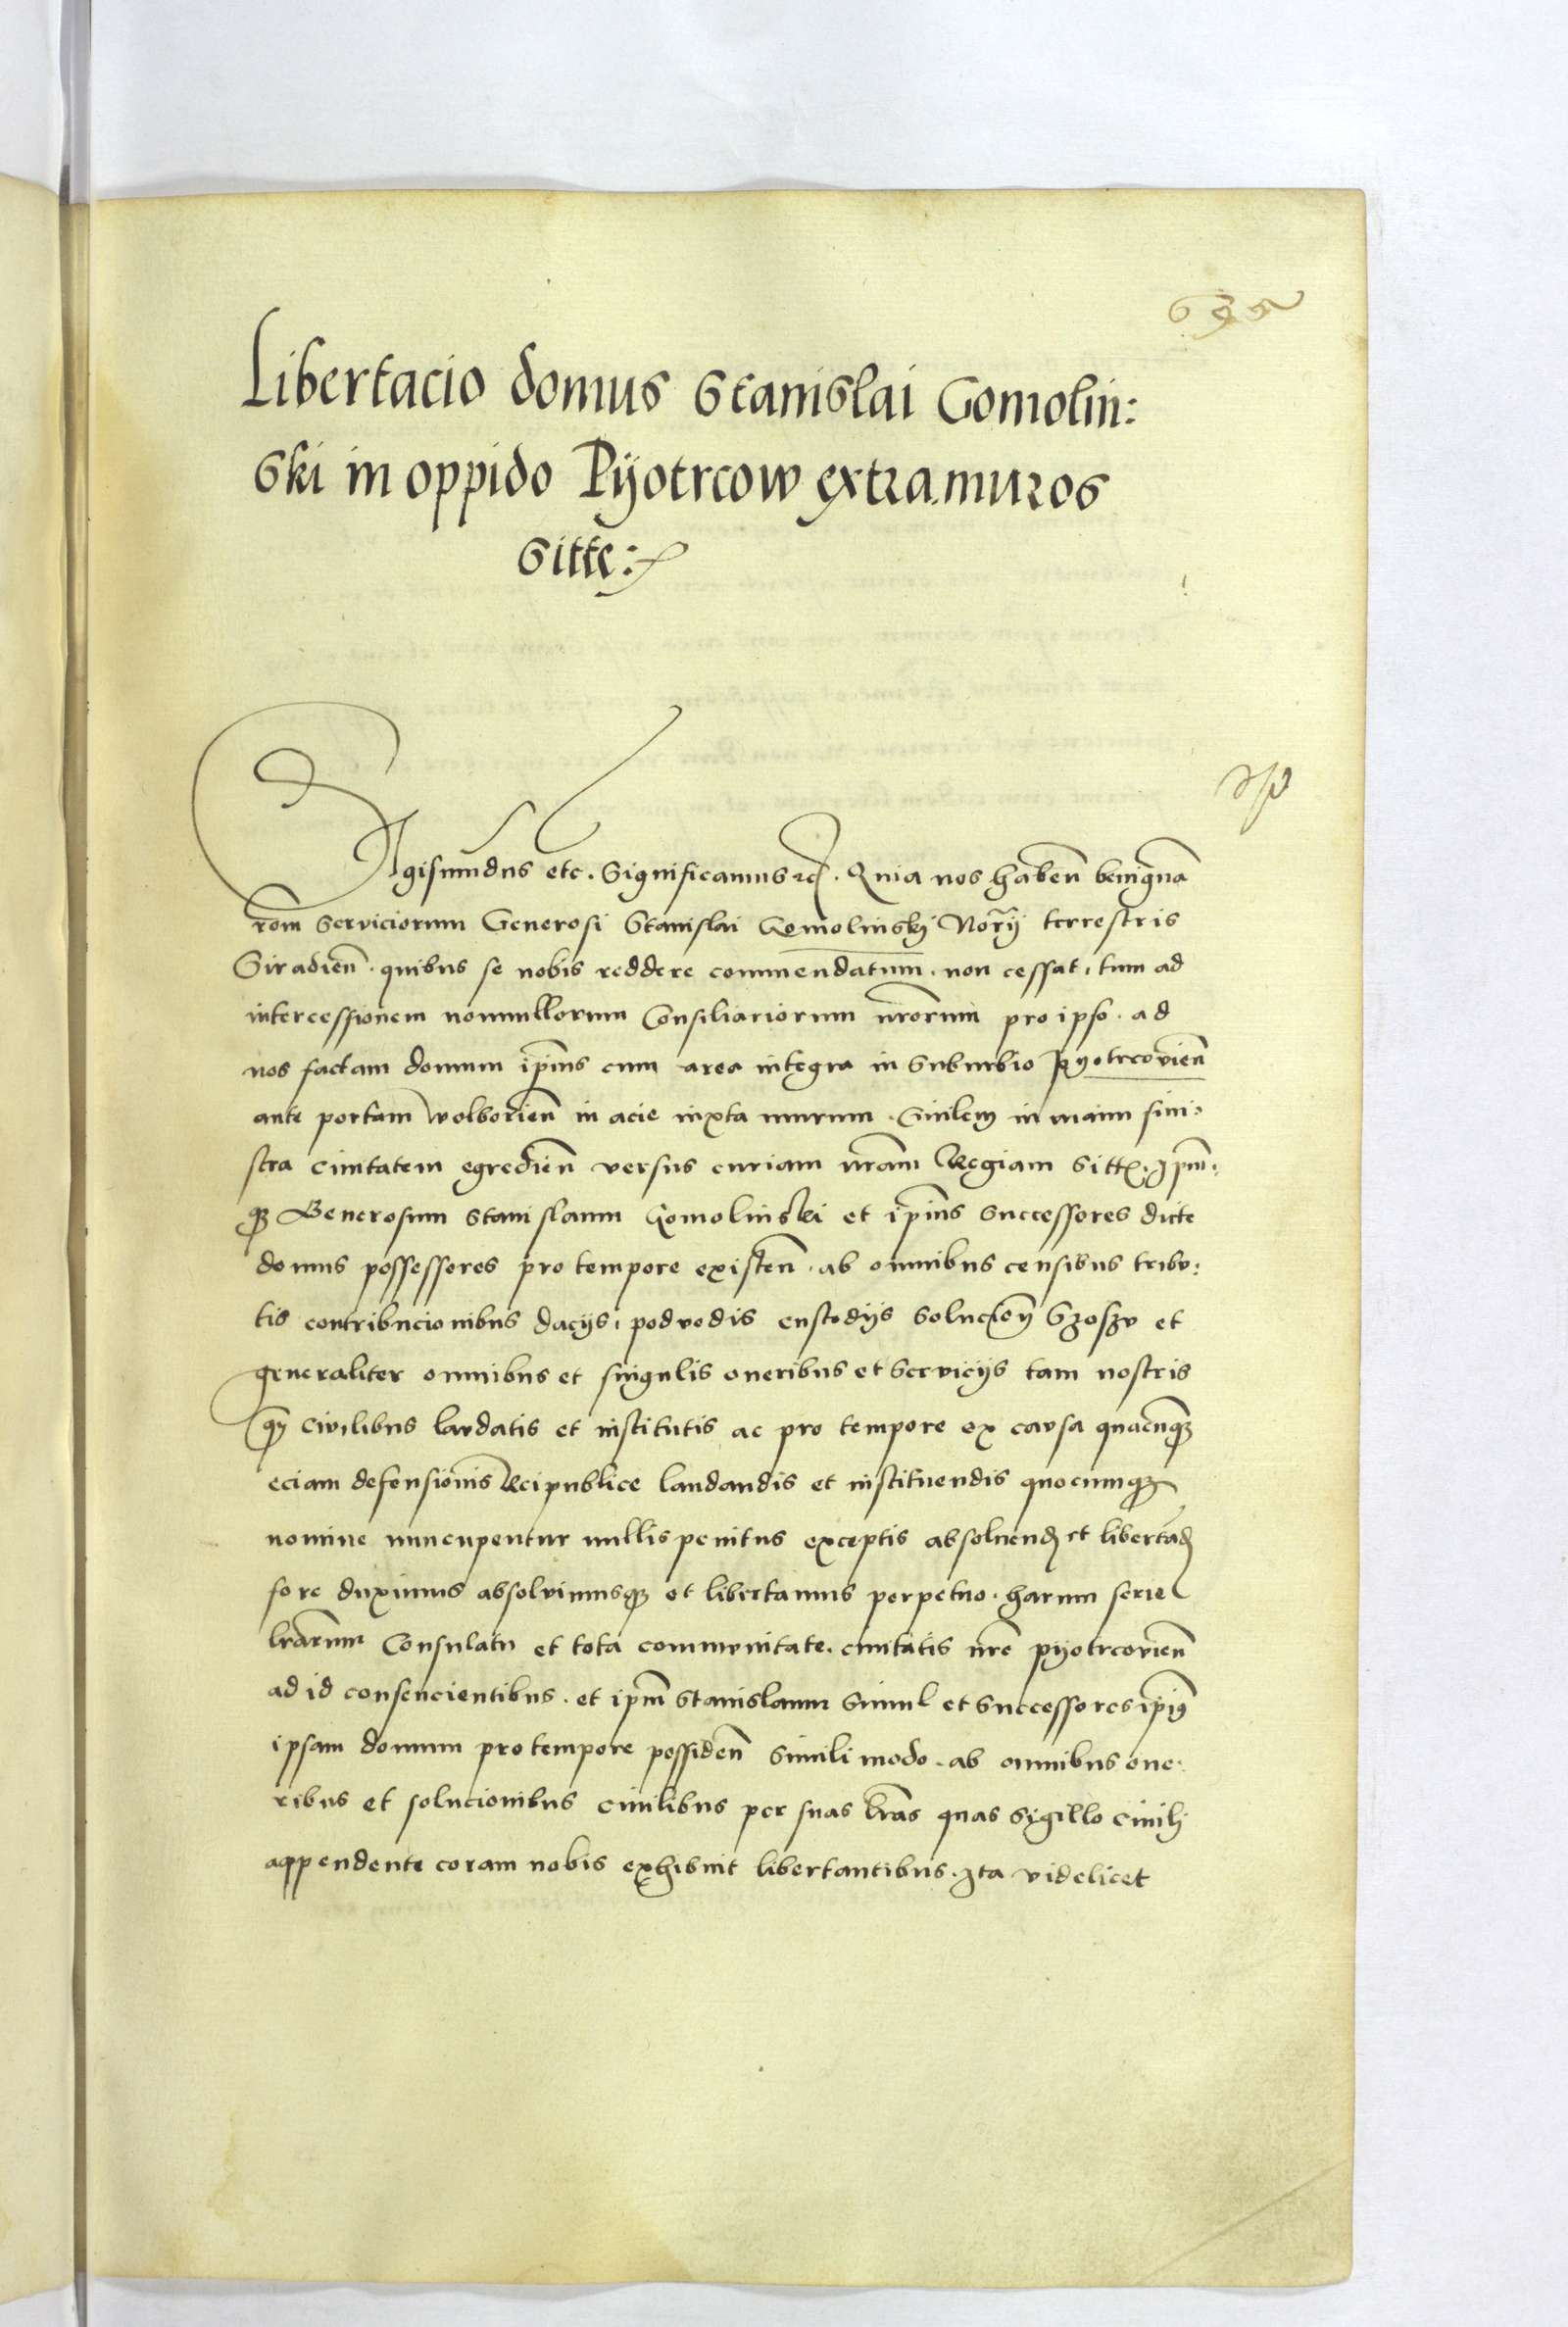 Libertacio domus Stanislai Gomolin:
ski in oppido Pyotrcow extra muros
sitte:
Sigismundus etc. Significamus etc. Quia nos haben̄ benignā
rōm serviciorum Generosi Stanislai Gomolinskj Norīj terrestris
Siradien̄. quibus se nobis reddere commendatum. non cessat, tum ad
intercessionem nonnullorum Consiliariorum nr̄orum pro ipso. ad
nos factam domum ip̄ius cum area integra in suburbio pyotrcovien̄
ante portam wolborien̄ in acie iuxta murum. Civilem in manu sini:
stra civitatem egredien̄ versus curiam nr̄am Regiam sitt. Ip̄m:
q̨ Generosum Stanislaum Gomolinski et ip̄ius successores dicte
domus possessores pro tempore existen̄. ab omnibus censibus tribu:
tis contribucionibus dacijs, podvodis custodijs solucion̄ Szoszv et
generaliter omnibus et singulis oneribus et servicijs tam nostris
q̄ȝ civilibus laudatis et institutis ac pro tempore ex causa quacunq̨
eciam defensionis Reipublice laudandis et instituendis quocumq̨
nomine nuncupentur nullis penitus exceptis absoluend̨ et libertand̨
fore duximus absolvimusq̨ et libertamus perpetuo. harum serie
lr̄arum Consulatu et tota communitate. civitatis nr̄e pyotrcovien̄
ad id consencientibus. et ip̄m Stanislaum simul et successores ip̄ius
ipsam domum pro tempore possiden̄ simili modo. ab omnibus one:
ribus et solucionibus civilibus per suas lr̄as quas sigillo civili
appendente coram nobis exhibuit libertantibus. Ita videlicet